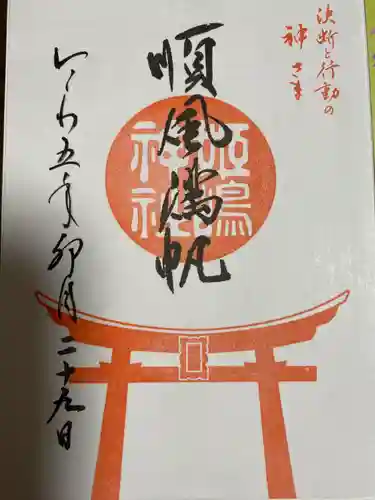 決断と行動の
神さま
順風満帆
神社
れいわ五年卯月二十九日